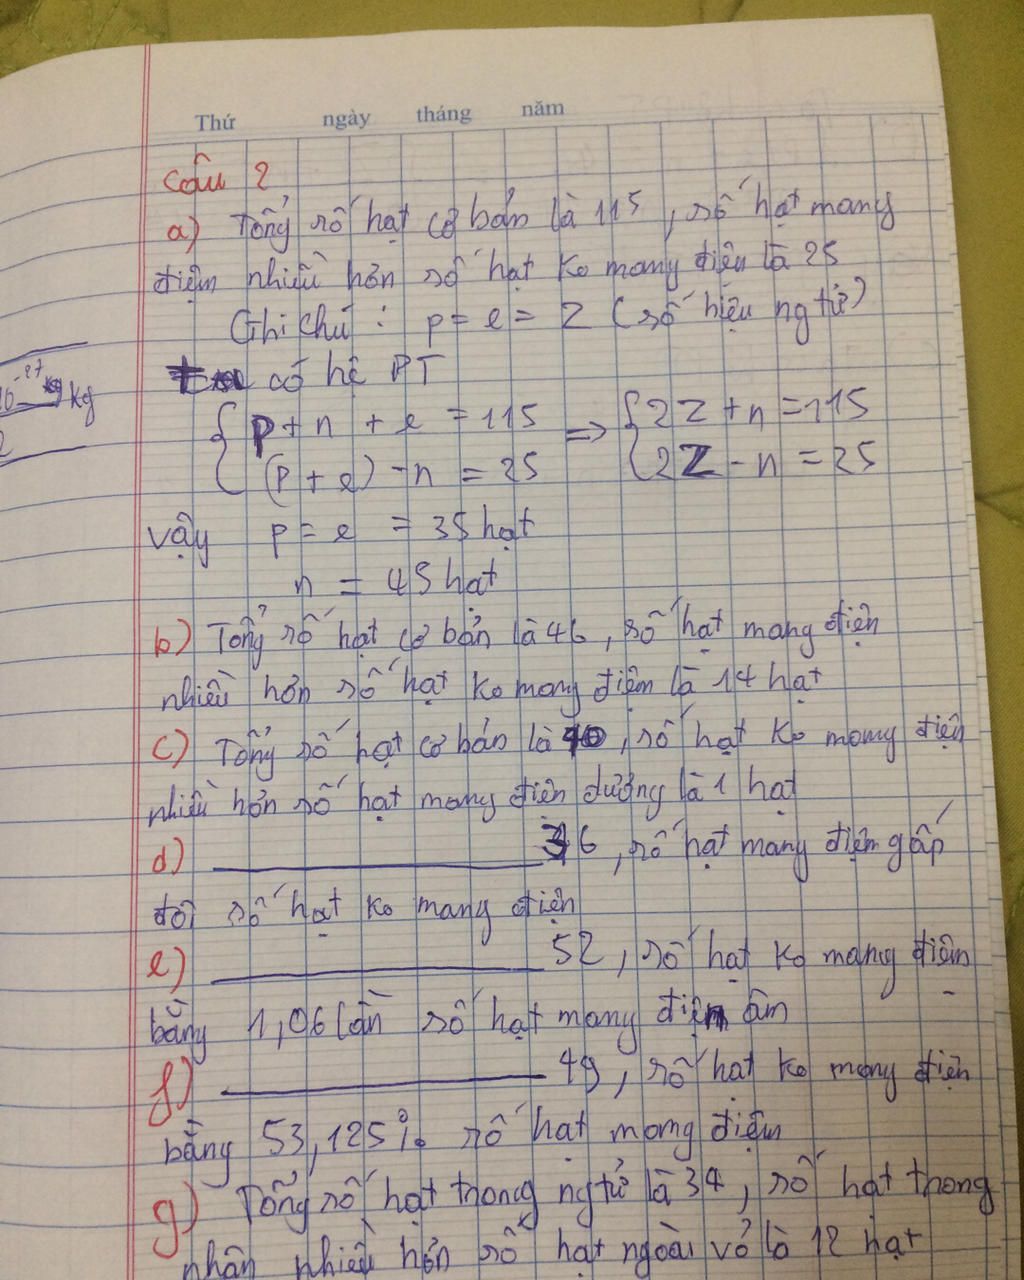 Thứ ngày tháng năm
Câu 2
a) Tổng số hạt cơ bản là 115, số hạt mang
điện nhiều hơn số hạt ko mang điện là 25
Ghi chú: p = e = Z (số hiệu ng tử)
có hệ PT
10^-27 kg
{ p + n + e = 115 => { 2Z + n = 115
{ (p + e) - n = 25 { 2Z - n = 25
2
vậy p = e = 35 hạt
n = 45 hạt
b) Tổng số hạt cơ bản là 46, số hạt mang điện
nhiều hơn số hạt ko mang điện là 14 hạt
c) Tổng số hạt cơ bản là 40, số hạt ko mang điện
nhiều hơn số hạt mang điện dương là 1 hạt
d) ______ 36, số hạt mang điện gấp
đôi số hạt ko mang điện
e) ______ 52, số hạt ko mang điện
bằng 1,06 lần số hạt mang điện âm
f) ______ 49, số hạt ko mang điện
bằng 53,125% số hạt mang điện
g) Tổng số hạt trong ng tử là 34, số hạt trong
nhân nhiều hơn số hạt ngoài vỏ là 12 hạt